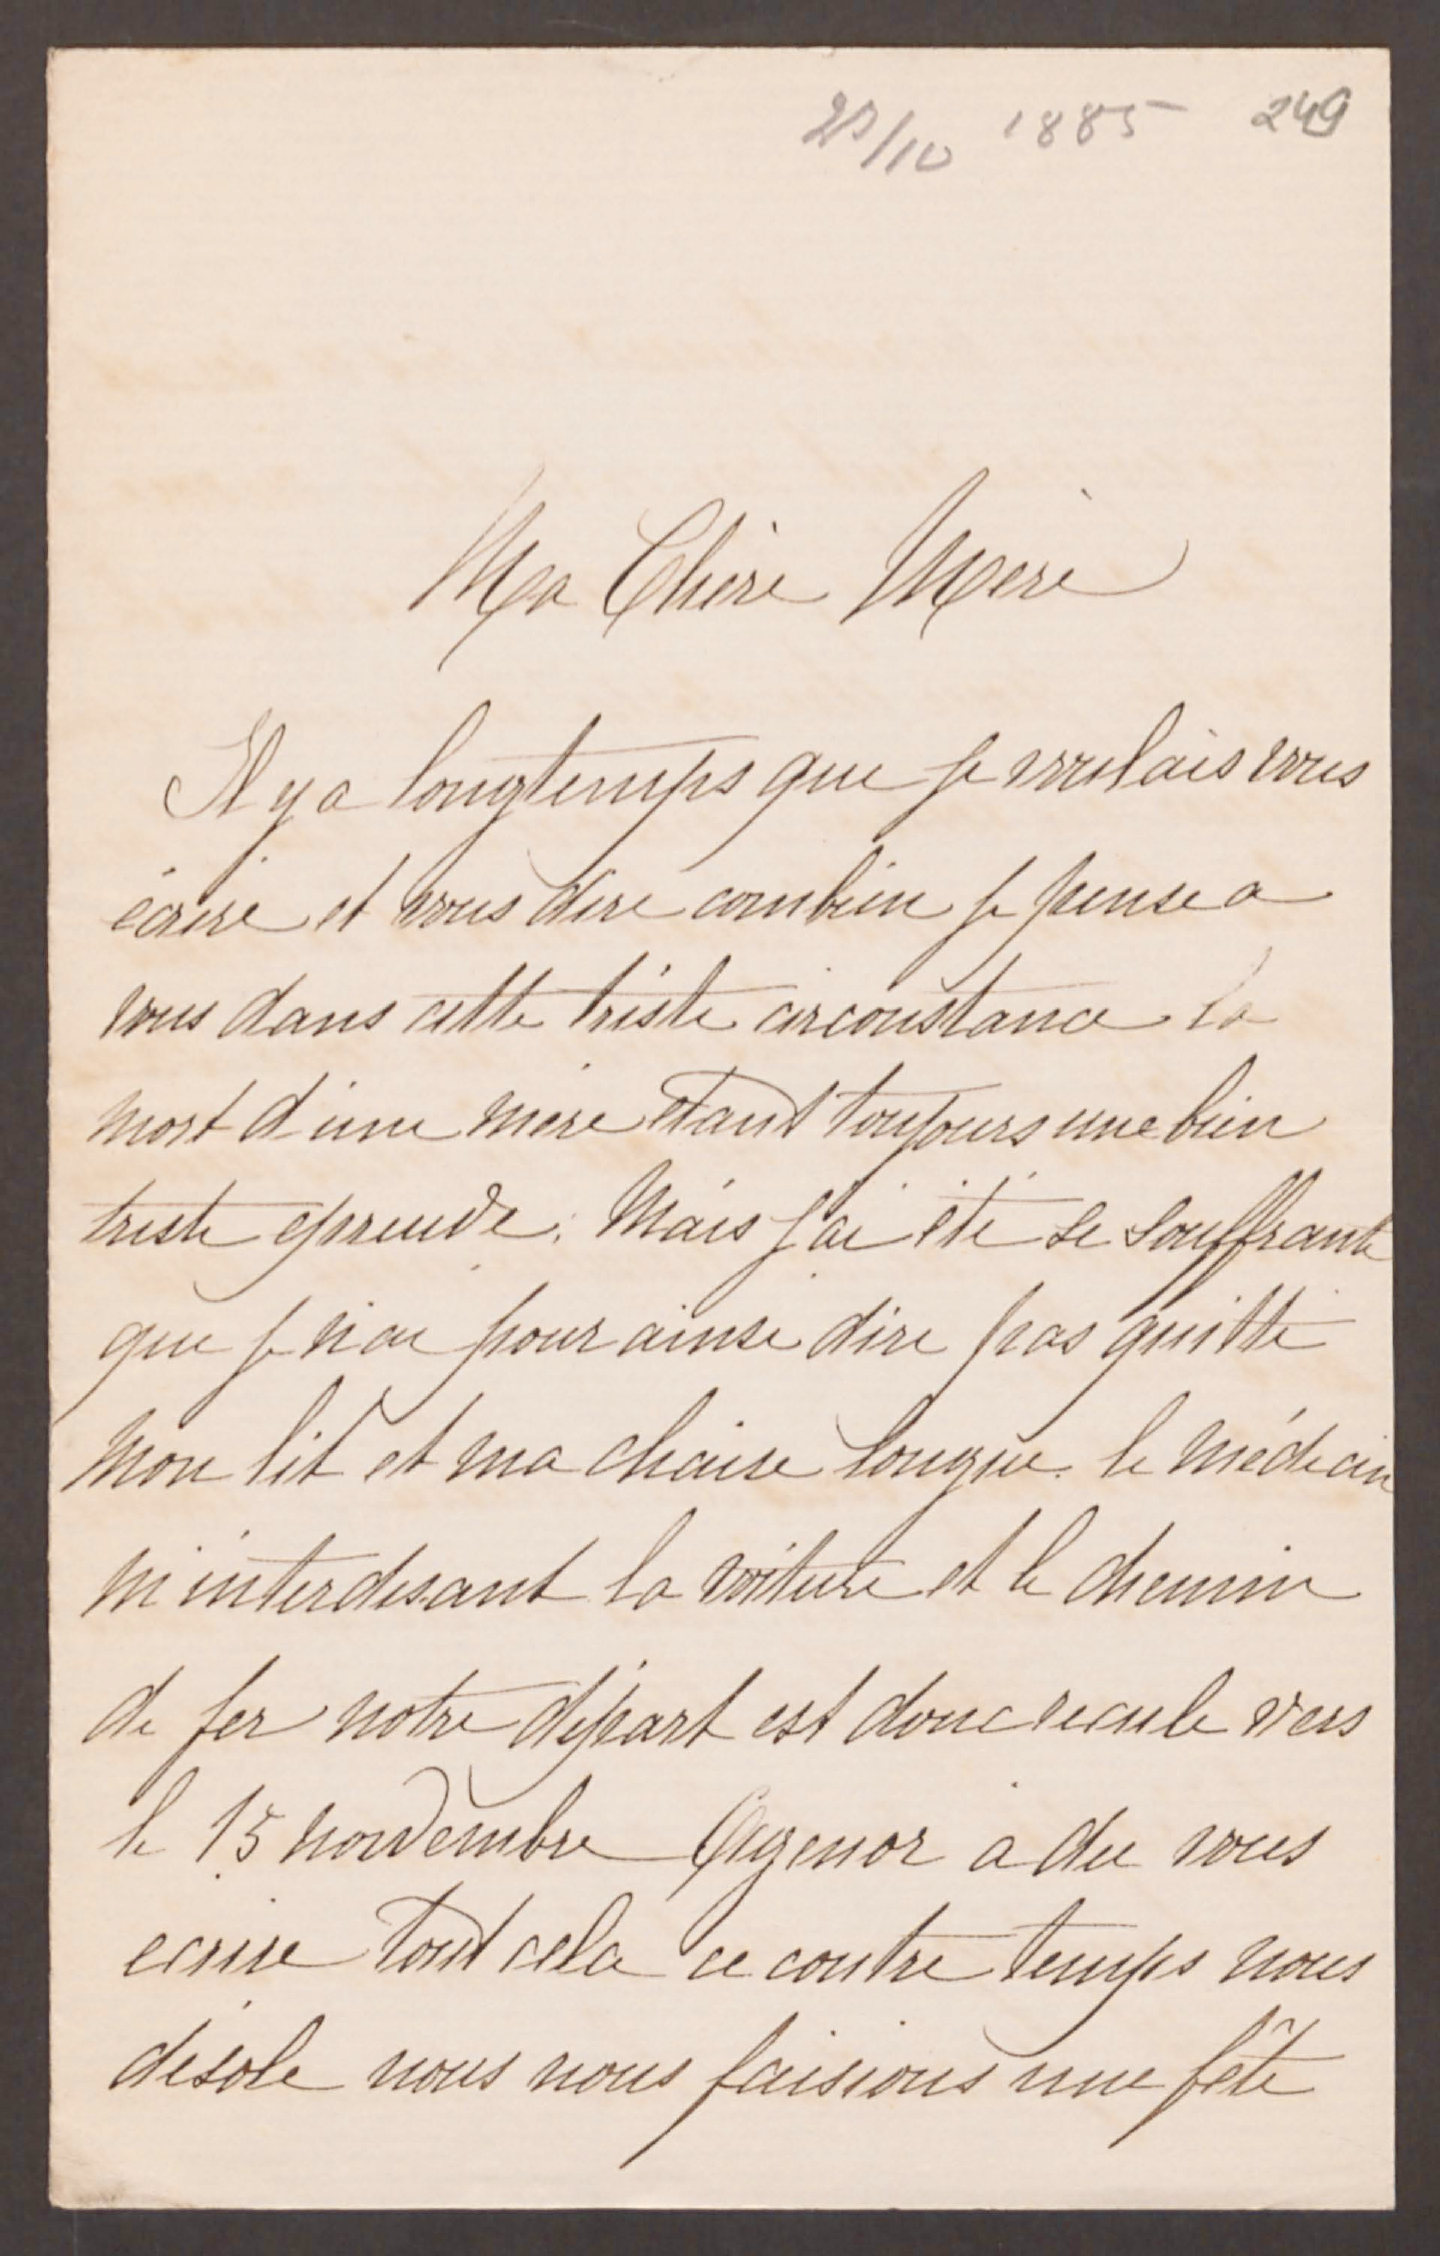 29/10 1885 249
Ma Chère Mère
Il y a longtemps que je voulais vous
écrire et vous dire combien je pense a
vous dans cette triste circonstance la
mort d'une mère etant toujours une bien
triste epreuve. Mais j'ai été si souffrante
que je n'ai pour ainsi dire pas quitté
mon lit et ma chaise longue. le médecin
m'interdisant la voiture et le chemin
de fer notre départ est donc reculé vers
le 15 novembre Agenor a du vous
ecrire tout cela ce contre temps nous
désole nous nous faisions une fête